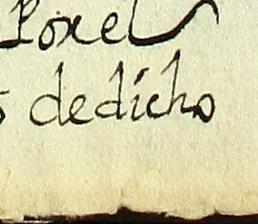 Por el
dedicho